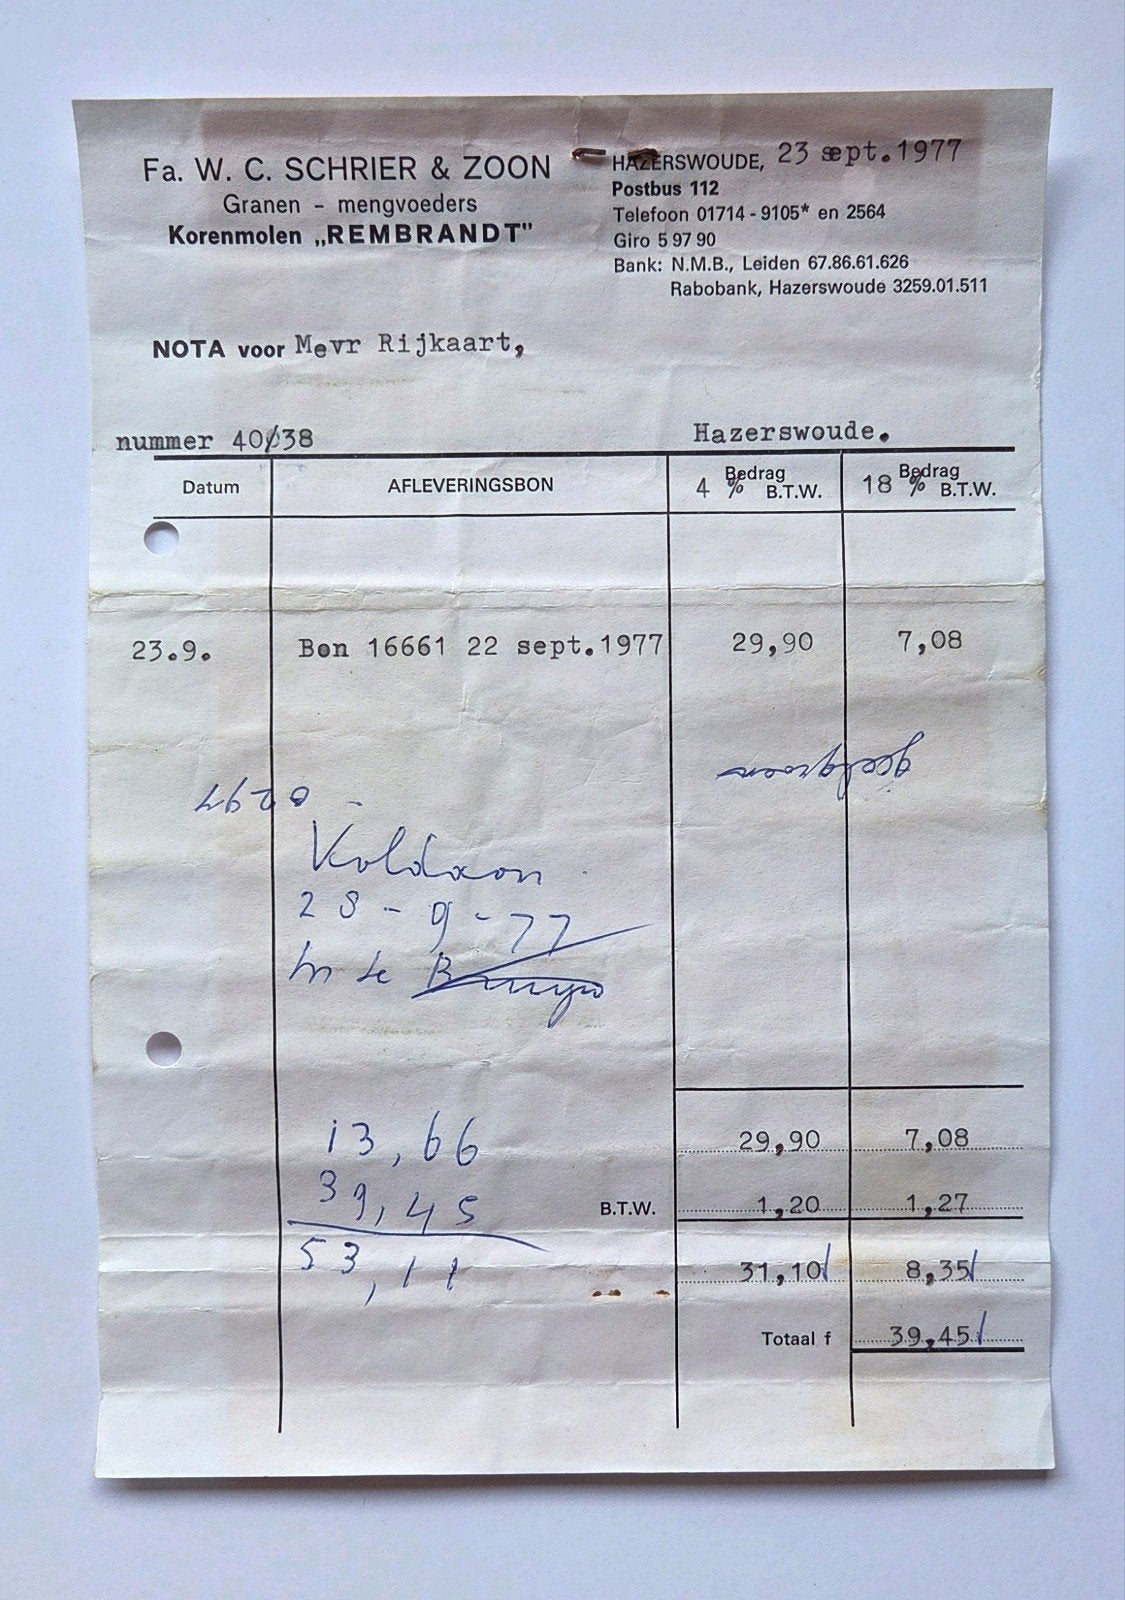 Fa. W. C. SCHRIER & ZOON
Granen - mengvoeders
Korenmolen „REMBRANDT"
HAZERSWOUDE, 23 sept. 1977
Postbus 112
Telefoon 01714 - 9105* en 2564
Giro 5 97 90
Bank: N.M.B., Leiden 67.86.61.626
Rabobank, Hazerswoude 3259.01.511
NOTA voor Mevr Rijkaart,
nummer 40/38 Hazerswoude.
Datum AFLEVERINGSBON 4 % Bedrag B.T.W. 18 % Bedrag B.T.W.
23.9. Bon 16661 22 sept.1977 29,90 7,08
Voldaan
28-9-77
13,66
39,45
53,11
29,90 7,08
B.T.W. 1,20 1,27
31,10 8,35
Totaal f 39,45